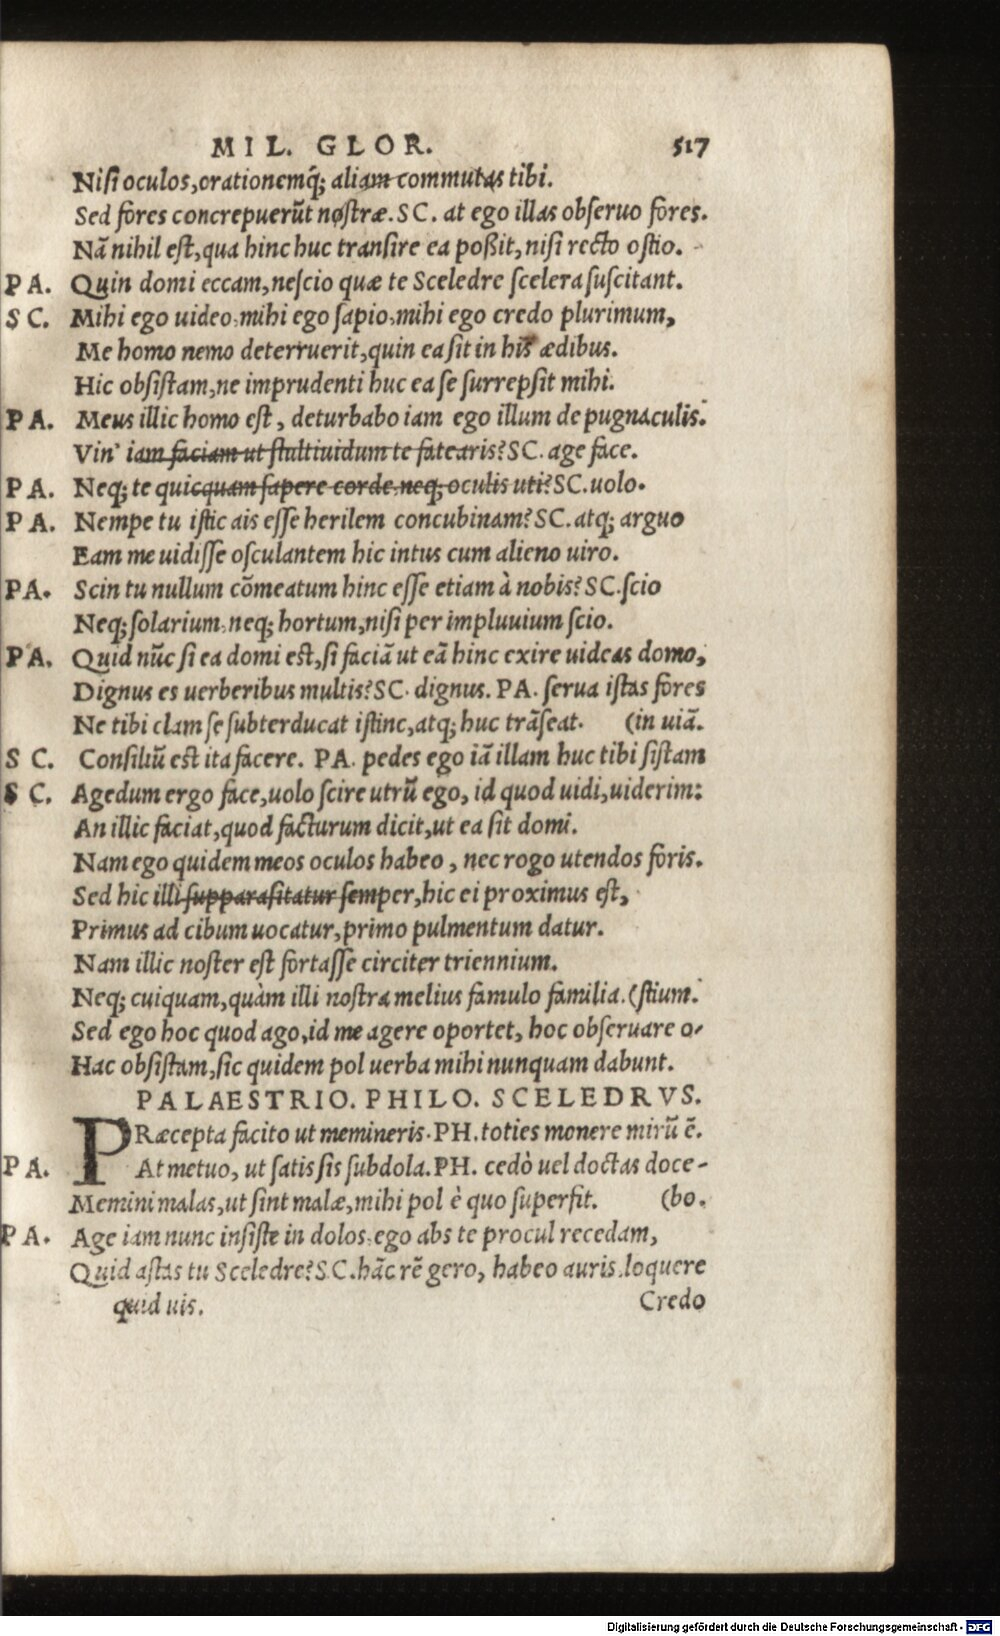 MIL. GLOR. 517
Nisi oculos, orationemq́; aliam commutas tibi.
Sed fores concrepuerūt nostræ. SC. at ego illas obseruo fores.
Nā nihil est, qua hinc huc transire ea poßit, nisi recto ostio.
PA. Quin domi eccam, nescio quæ te Sceledre scelera suscitant.
SC. Mihi ego uideo, mihi ego sapio, mihi ego credo plurimum,
Me homo nemo deterruerit, quin ea sit in his ædibus.
Hic obsistam, ne imprudenti huc ea se surrepsit mihi.
PA. Meus illic homo est, deturbabo iam ego illum de pugnaculis.
Vin' iam faciam ut stultiuidum te fatearis? SC. age face.
PA. Neq; te quicquam sapere corde, neq; oculis uti? SC. uolo.
PA. Nempe tu istic ais esse herilem concubinam? SC. atq; arguo
Eam me uidisse osculantem hic intus cum alieno uiro.
PA. Scin tu nullum cōmeatum hinc esse etiam à nobis? SC. scio
Neq; solarium, neq; hortum, nisi per impluuium scio.
PA. Quid nūc si ea domi est, si faciā ut eā hinc exire uideas domo,
Dignus es uerberibus multis? SC. dignus. PA. serua istas fores
Ne tibi clam se subterducat istinc, atq; huc trāseat. (in uiā.
SC. Consiliū est ita facere. PA. pedes ego iā illam huc tibi sistam
SC. Agedum ergo face, uolo scire utrū ego, id quod uidi, uiderim:
An illic faciat, quod facturum dicit, ut ea sit domi.
Nam ego quidem meos oculos habeo, nec rogo utendos foris.
Sed hic illi supparasitatur semper, hic ei proximus est,
Primus ad cibum uocatur, primo pulmentum datur.
Nam illic noster est fortasse circiter triennium.
Neq; cuiquam, quàm illi nostra melius famulo familia. (stium.
Sed ego hoc quod ago, id me agere oportet, hoc obseruare o-
Hac obsistam, sic quidem pol uerba mihi nunquam dabunt.
PALAESTRIO. PHILO. SCELEDRVS.
PRæcepta facito ut memineris. PH. toties monere mirū ē.
PA. At metuo, ut satis sis subdola. PH. cedò uel doctas doce-
Memini malas, ut sint malæ, mihi pol è quo superfit. (bo.
PA. Age iam nunc insiste in dolos, ego abs te procul recedam,
Quid astas tu Sceledre? SC. hāc rē gero, habeo auris, loquere
quid uis. Credo
Digitalisierung gefördert durch die Deutsche Forschungsgemeinschaft - DFG